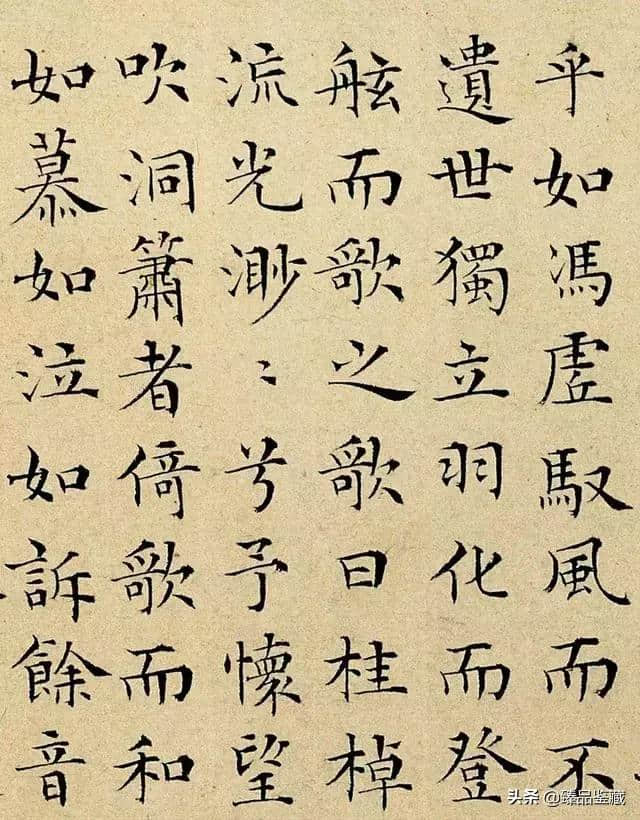 乎如馮虛馭風而不
遺世獨立羽化而登
舷而歌之歌曰桂棹
流光渺〻兮予懷望
吹洞簫者倚歌而和
如慕如泣如訴餘音
头条 @臻品鉴藏